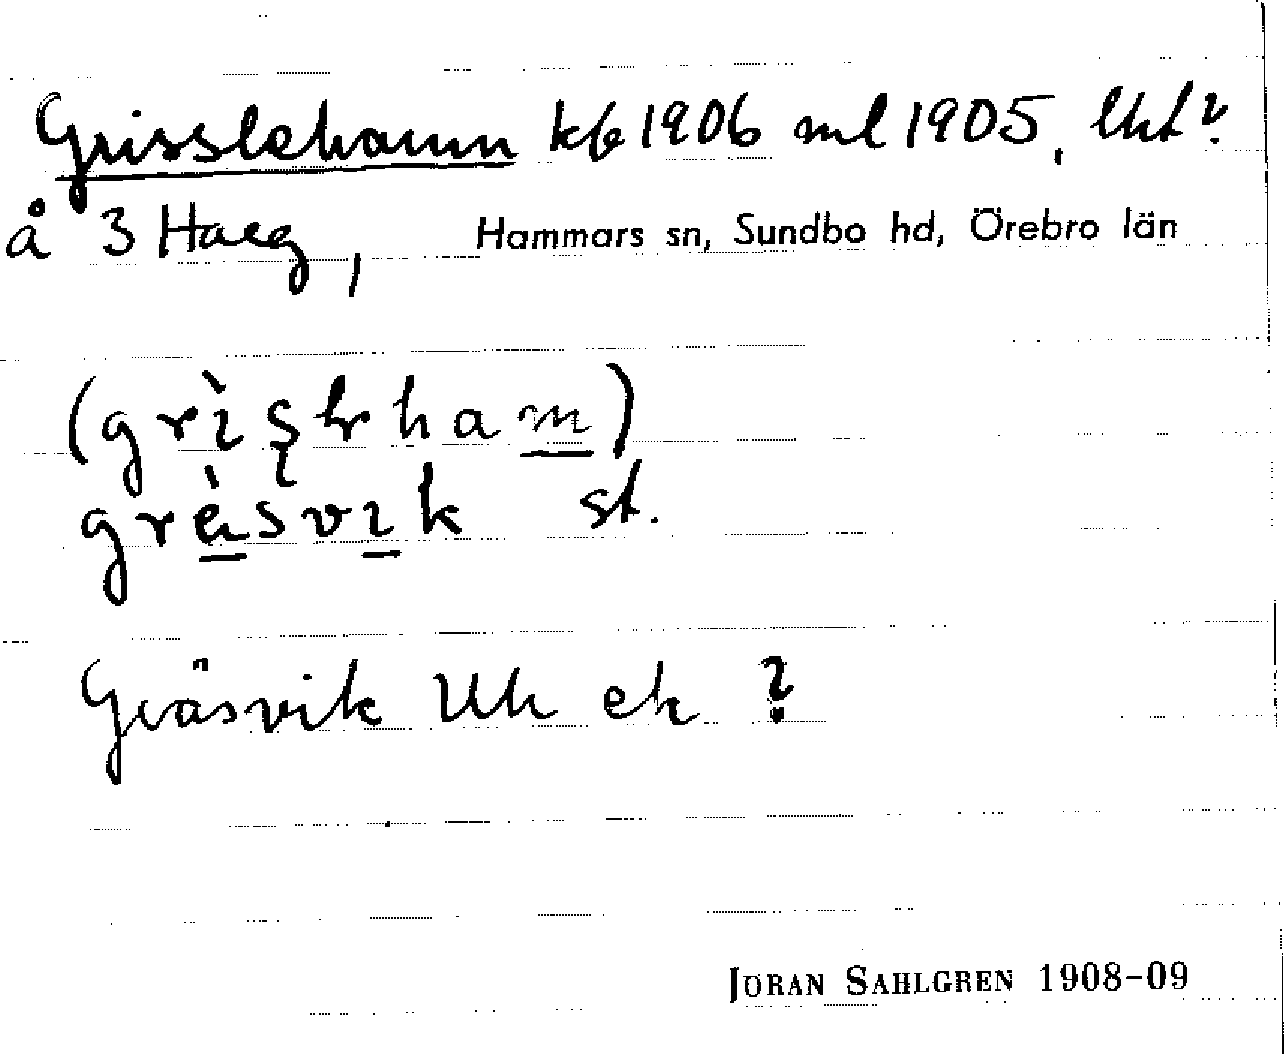 Grisslehamn kb 1906 ml 1905, lht?
å 3 Haeg, Hammars sn, Sundbo hd, Örebro län
(grìslrham)
grä̀svık st.
Gräsvik Uh ek ?
JÖRAN SAHLGREN 1908-09